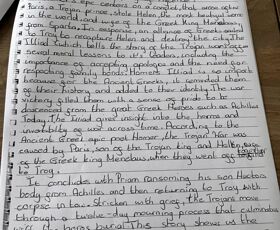 centers on a conflict that arose after
Paris, a Trojan prince, stole Helen, the most beautiful woman
in the world, and wife of the Greek King Menelaus,
from Sparta. In response, an alliance of Greeks sailed
to Troy to recapture Helen and destroy the city. The
Illiad which tells the story of the Trojan war
several moral lessons to it's readers, including the
importance of accepting apologies and the need for
respecting family bonds. Homer's Illiad is so
because for the Ancient Greeks, it reminded them
of their history and added to their identity. The war
victory filled them with a sense of pride to be
descended from great Greek Heroes such as Achilles
Today, The Illiad gives insight into the horrors and
inevitability of war across time. According to the
Ancient Greek epic poet Homer, the Trojan War was
caused by Paris, son of the Trojan king and
of the Greek king Menelaus, when they went off together
to Troy.
It concludes with Priam ransoming his son Hectors
body from Achilles and then returning to Troy with
corpse in tow. Stricken with grief, the Trojans move
through a twelve-day mourning process that culminates
burial This story shows us the